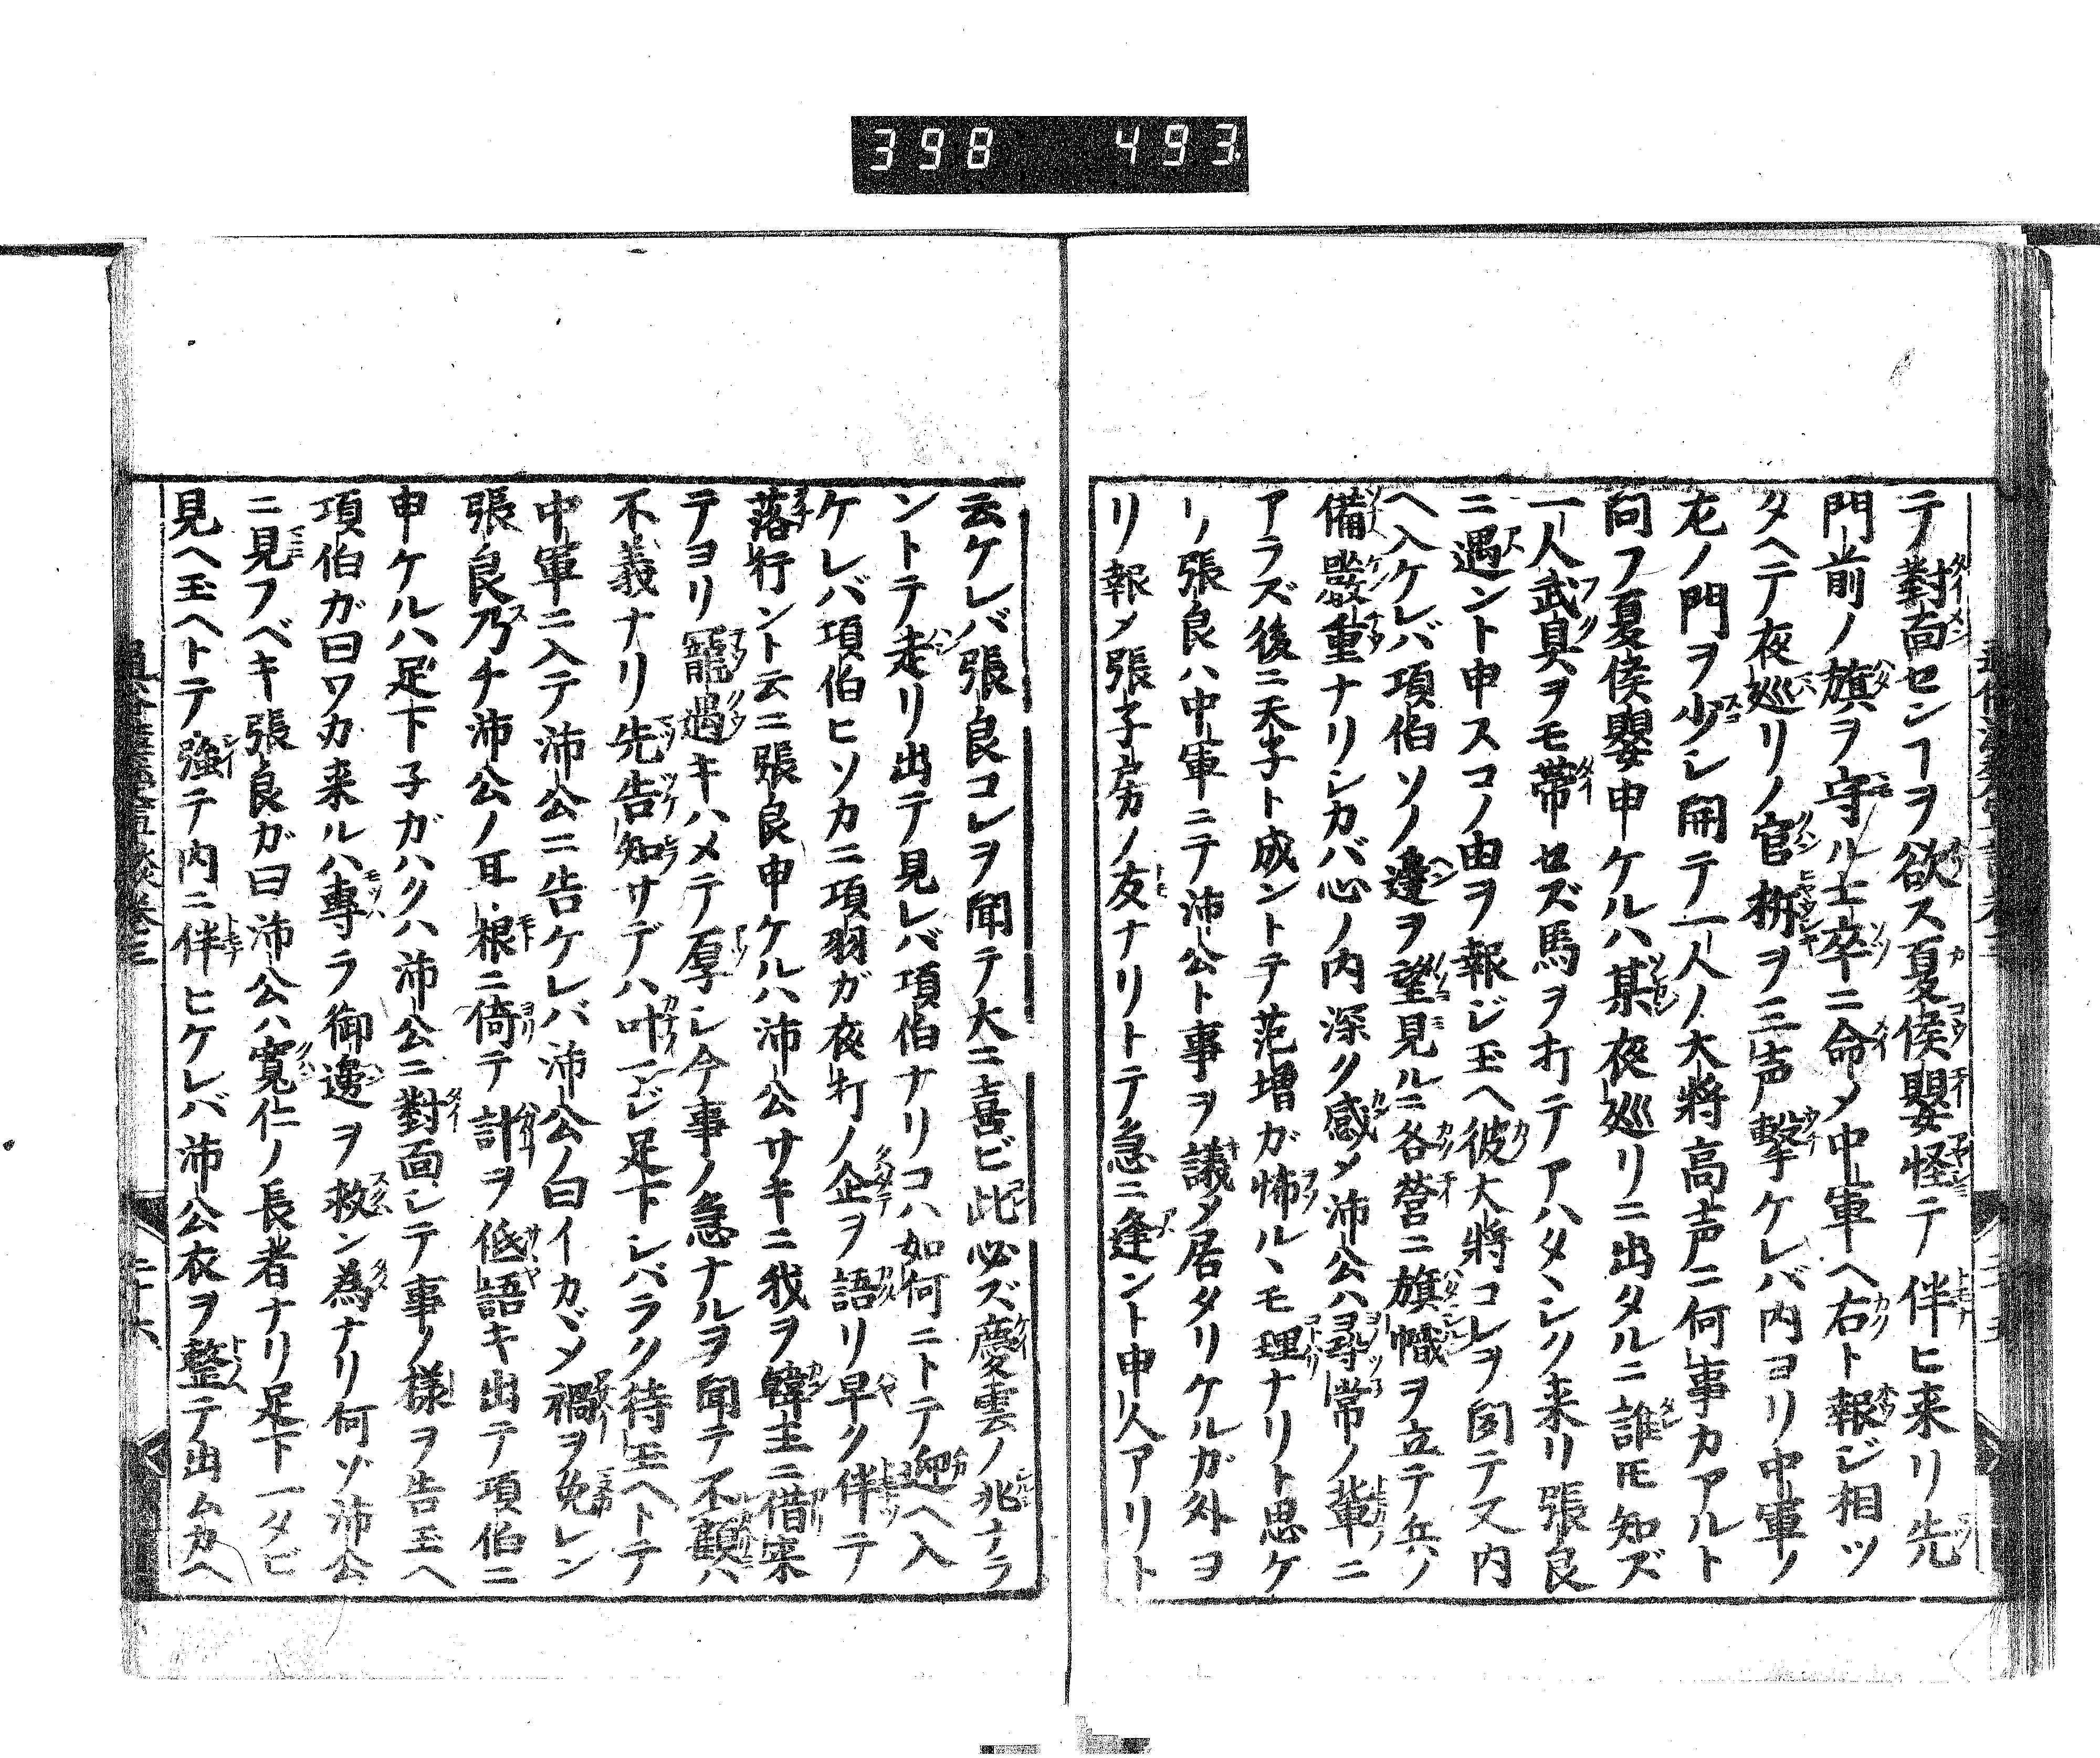 398 493
テ對面センヿヲ欲ス夏侯嬰怪テ伴ヒ来リ先
門前ノ旗ヲ守ル士卒ニ命メ中軍ヘ右ト報ジ相ツ
タヘテ夜巡リノ官柝ヲ三声撃ケレバ内ヨリ中軍ノ
左ノ門ヲ少シ開テ一人ノ大將高声ニ何事カアルト
問フ夏侯嬰申ケルハ某夜巡リニ出タルニ誰トモ知ズ
一人武具ヲモ帯セズ馬ヲ打テアハタヽシク来リ張良
ニ遇ント申スコノ由ヲ報ジ玉ヘ彼大將コレヲ聞テ又内
ヘ入ケレバ項伯ソノ邊ヲ望見ルニ各營ニ旗幟ヲ立テ兵ノ
備嚴重ナリシカバ心ノ内深ク感メ沛公ハ尋常ノ輩ニ
アラズ後ニ天子ト成ントテ范増ガ怖ルヽモ理ナリト思ケ
リノ張良ハ中軍ニテ沛公ト事ヲ議メ居タリケルガ外ヨ
リ報メ張子房ノ友ナリトテ急ニ逢ント申人アリト
云ケレバ張良コレヲ聞テ大ニ喜ビ此必ズ慶雲ノ兆ナラ
ントテ走リ出テ見レバ項伯ナリコハ如何ニトテ迎ヘ入
ケレバ項伯ヒソカニ項羽ガ夜打ノ企ヲ語リ早ク伴テ
落行ント云ニ張良申ケルハ沛公サキニ我ヲ韓王ニ借来
テヨリ寵遇キハメテ厚シ今事ノ急ナルヲ聞テ不顧ハ
不義ナリ先告知サデハ叶フマジ足下シバラク待玉ヘトテ
中軍ニ入テ沛公ニ告ケレバ沛公ノ曰イカヾメ禍ヲ免レン
張良乃チ沛公ノ耳根ニ倚テ計ヲ低語キ出テ項伯ニ
申ケルハ足下子ガハクハ沛公ニ對面シテ事ノ様ヲ告玉ヘ
項伯ガ曰ワカ来ルハ專ラ御邊ヲ救ン為ナリ何ゾ沛公
ニ見フベキ張良ガ曰沛公ハ寛仁ノ長者ナリ足下一タビ
見ヘ玉ヘトテ強テ内ニ伴ヒケレバ沛公衣ヲ整テ出ムカヘ
二十六